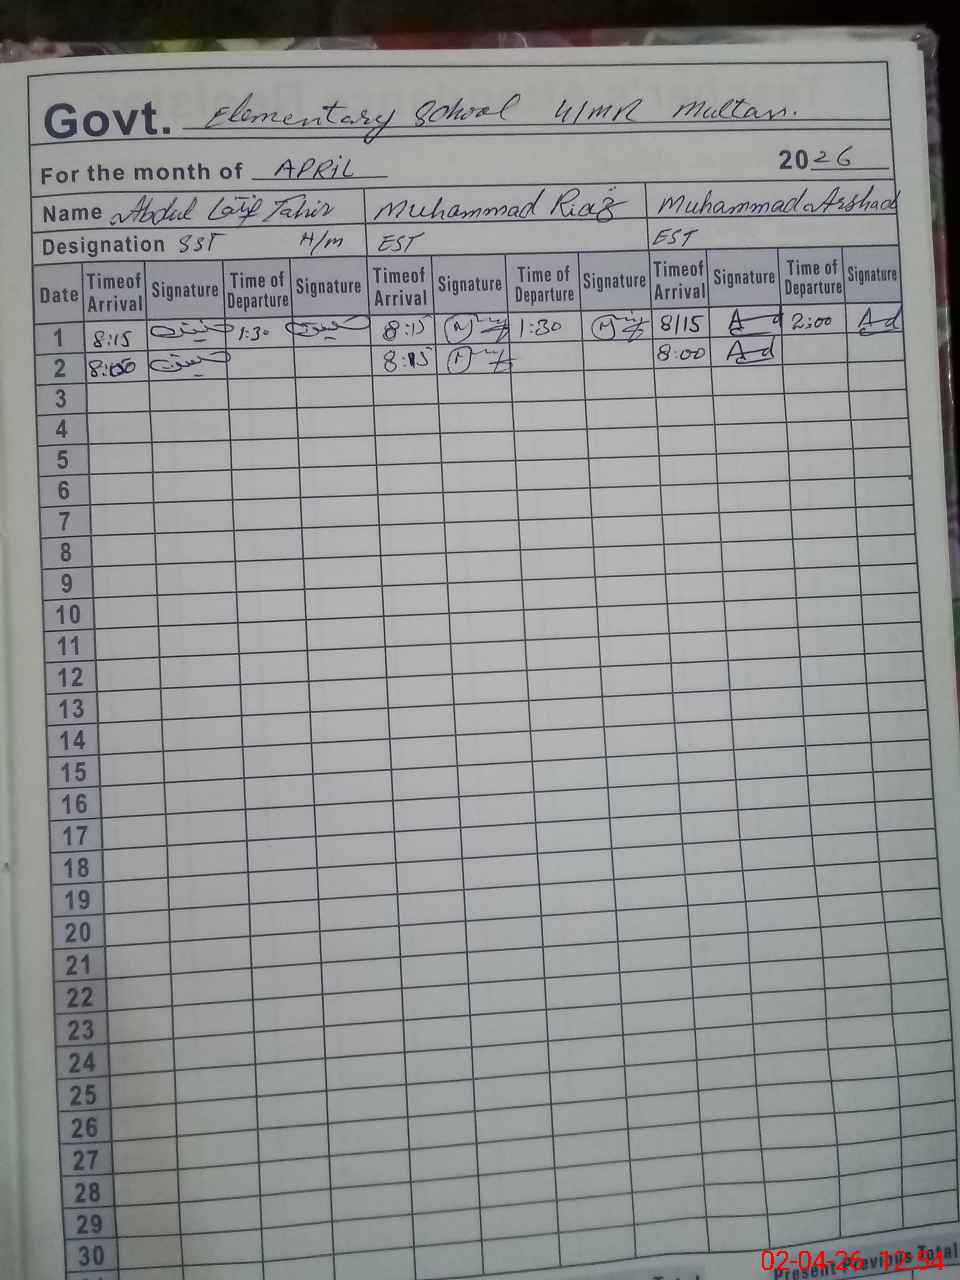 Govt. Elementary School 4/MR Multan.
For the month of APRIL 2026
Name Abdul Latif Tahir Muhammad Riaz Muhammad Arshad
Designation SST H/m EST EST
Date Timeof Arrival Signature Time of Departure Signature Timeof Arrival Signature Time of Departure Signature Timeof Arrival Signature Time of Departure Signature
1 8:15 1:30 8:15 1:30 8/15 2:00
2 8:00 8:15 8:00
3
4
5
6
7
8
9
10
11
12
13
14
15
16
17
18
19
20
21
22
23
24
25
26
27
28
29
30
Present Previous Total
02-04-26 12:54